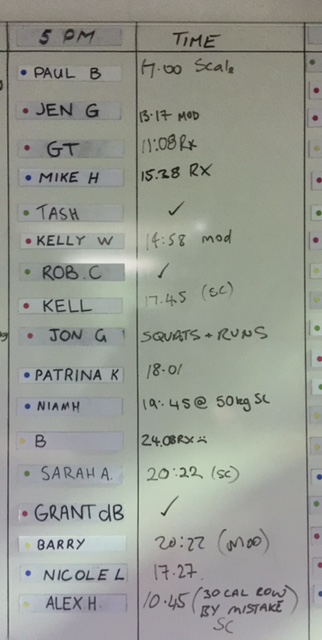 5 PM TIME
PAUL B 17.00 Scale
JEN G 13.17 MOD
GT 11:08 Rx
MIKE H 15.28 RX
TASH ✓
KELLY W 14:58 mod
ROB.C ✓
KELL 17.45 (SC)
JON G SQUATS + RUNS
PATRINA K 18.01
NIAMH 19:45@ 50kg SC
B 24.08RX
SARAH A. 20:22 (SC)
GRANT dB ✓
BARRY 20:22 (MOD)
NICOLE L 17.27
ALEX H. 10.45 (30 CAL ROW
BY MISTAKE
SC